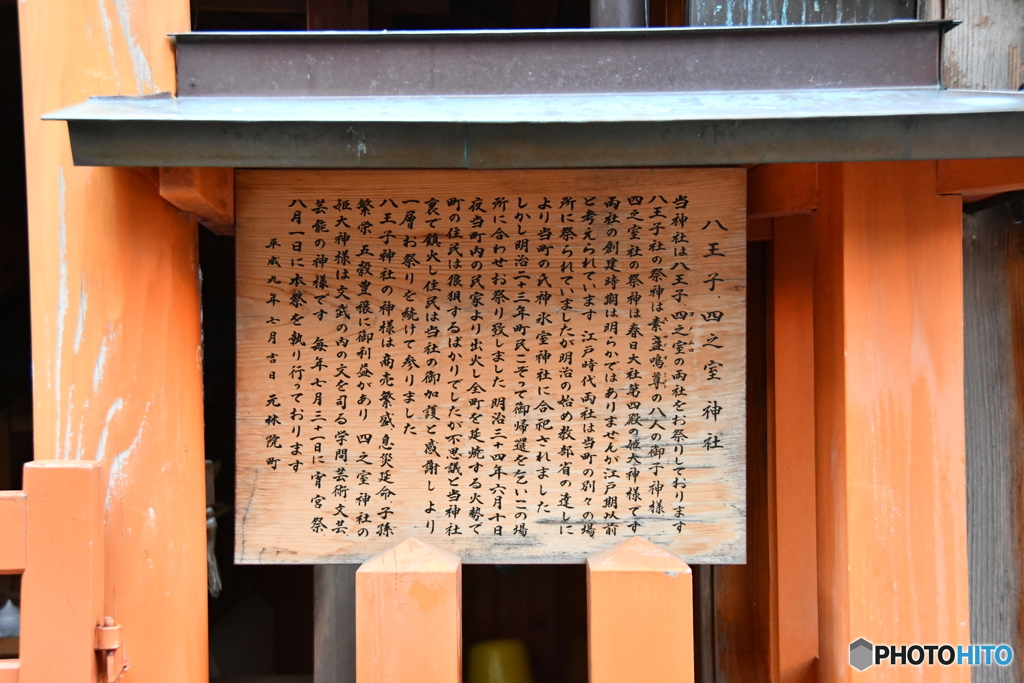 八王子・四之室 神社
当神社は八王子、四之室の両社をお祭りしております
八王子社の祭神は素盞鳴尊の八人の御子神様
四之室社の祭神は春日大社第四殿の姫大神様です
両社の創建時期は明らかではありませんが江戸期以前
と考えられています 江戸時代両社は当町の別々の場
所に祭られていましたが明治の始め教部省の達しに
より当町の氏神氷室神社に合祀されました
しかし明治二十三年町民こぞって御帰還を乞いこの場
所に合わせお祭り致しました 明治三十四年六月十日
夜当町内の民家より出火し全町を延焼する火勢で
町の住民は狼狽するばかりでしたが不思議と当神社
裏て鎮火し住民は当社の御加護と感謝しより
一層お祭りを続けて参りました
八王子神社の神様は商売繁盛、息災延命、子孫
繁栄五穀豊穣に御利益があり 四之室神社の
姫大神様は文武の内の文を司る学問芸術文芸
芸能の神様です 毎年七月三十一日に宵宮祭、
八月一日に本祭を執り行っております
平成九年七月吉日 元林院町
PHOTOHITO